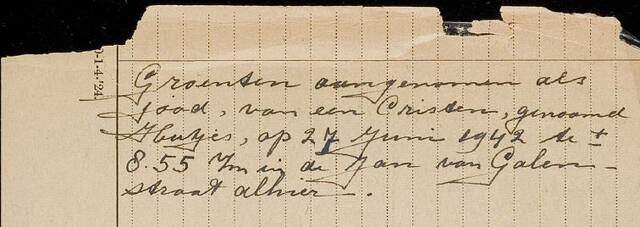 Groenten aangenomen als
jood, van een Cristen, genaamd
op 27 Juni 1942 te ±
8.55 in de Jan van Galen-
straat alhier.
-1-4-'24